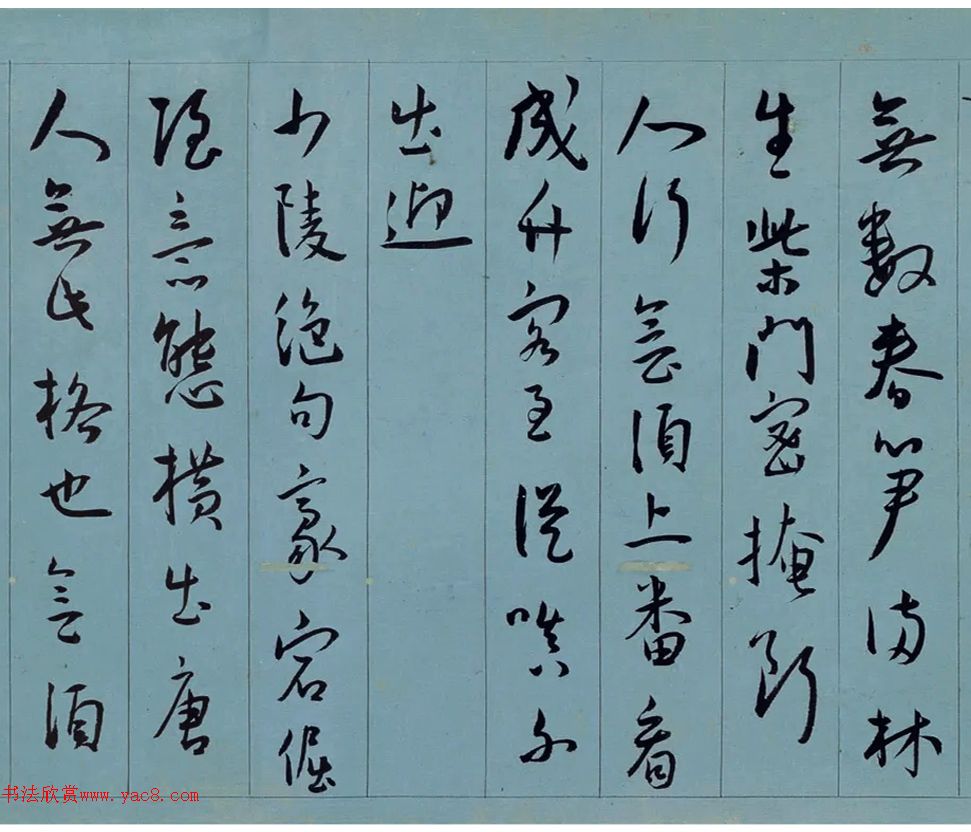 無數春筍滿林
生柴門密掩斷
人行會須上番看
成竹客至從嗔不
出迎
少陵絕句豪宕倔
強意態橫出唐
人無此格也會須
书法欣赏www.yac8.com